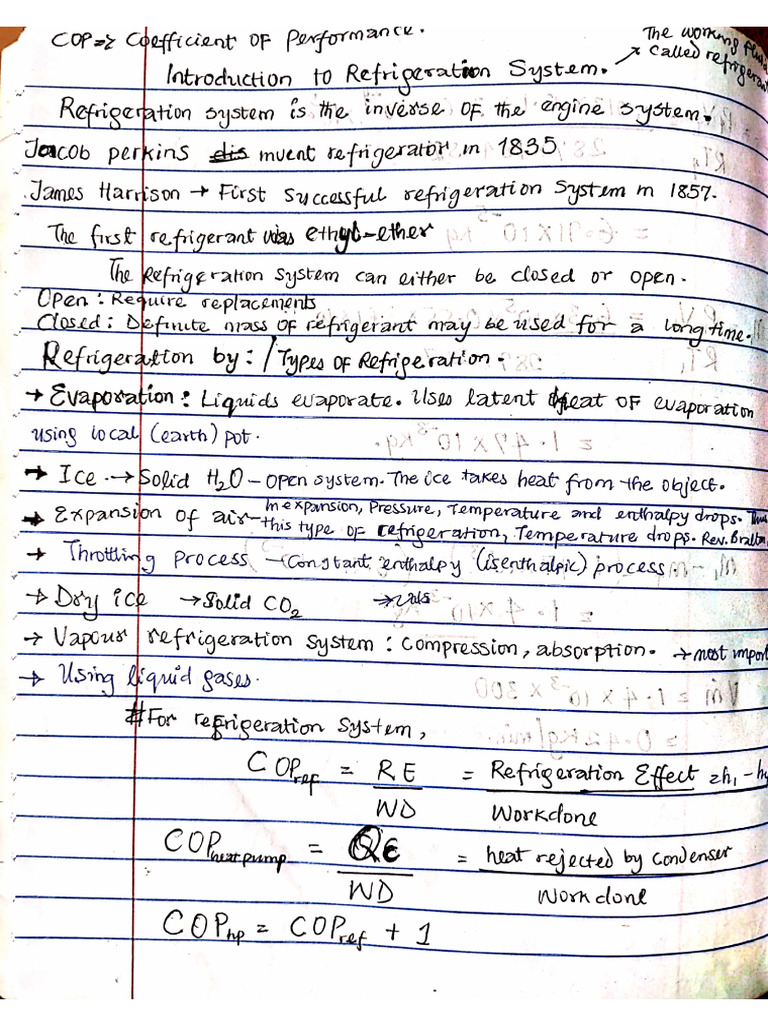 COP => Coefficient OF Performance.
The working fluid
called refrigerant
Introduction to Refrigeration System.
Refrigeration system is the inverse of the engine system.
Jacob perkins invent refrigerator in 1835
James Harrison → First successful refrigeration system in 1857.
The first refrigerant was ethyl-ether
The Refrigeration system can either be closed or open.
Open: Require replacements
Closed: Definite mass of refrigerant may be used for a long time.
Refrigeration by: / Types of Refrigeration.
→ Evaporation: Liquids evaporate. Uses latent heat of evaporation
using local (earth) pot.
→ Ice → Solid H₂O – open system. The ice takes heat from the object.
→ Expansion of air – In expansion, Pressure, Temperature and enthalpy drops. Thus
this type of refrigeration, Temperature drops. Rev. Brayton
→ Throttling process → Constant enthalpy (isenthalpic) process
→ Dry ice → Solid CO₂ →
→ Vapour refrigeration system: compression, absorption. → most import
→ Using liquid gases.
# For refrigeration system,
COP_ref = RE / WD = Refrigeration Effect / Workdone = h₁ - h
COP_heat pump = / WD = heat rejected by condenser / Workdone
COP_hp = COP_ref + 1